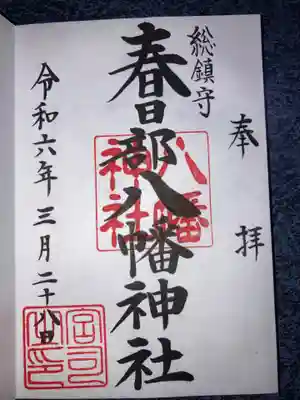 奉拝
総鎮守
春日部八幡神社
八幡神社
令和六年三月二十八日
宮司之印